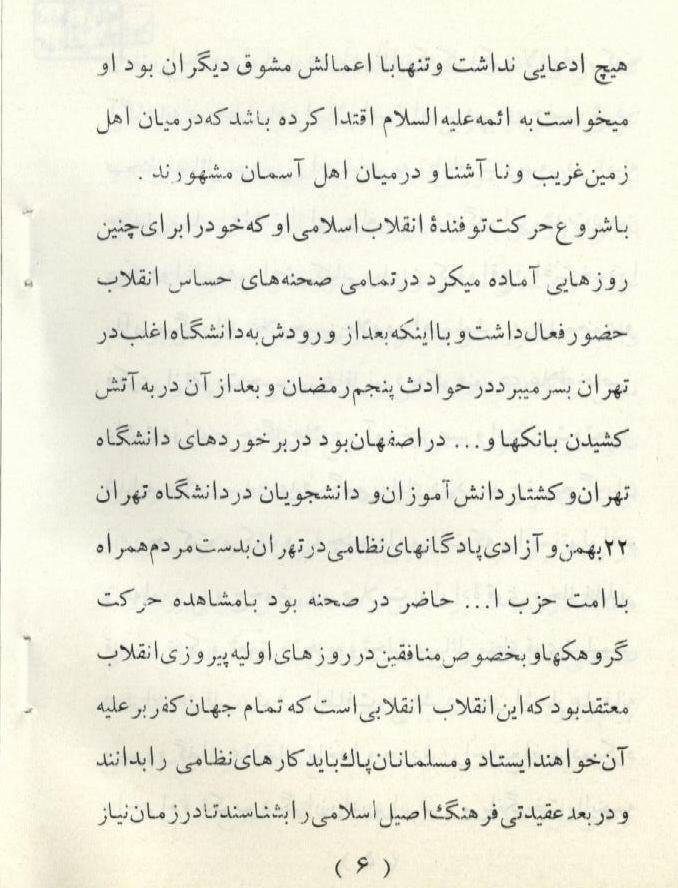 هیچ ادعایی نداشت و تنها با اعمالش مشوق دیگران بود او
میخواست به ائمه علیه السلام اقتدا کرده باشد که در میان اهل
زمین غریب و نا آشنا و درمیان اهل آسمان مشهورند .
باشروع حرکت توفندهٔ انقلاب اسلامی او که خود را برای چنین
روزهایی آماده میکرد در تمامی صحنه‌های حساس انقلاب
حضور فعال داشت و با اینکه بعد از ورودش به دانشگاه اغلب در
تهران بسر میبرد در حوادث پنجم رمضان و بعد از آن در به آتش
کشیدن بانکها و... در اصفهان بود در برخوردهای دانشگاه
تهران و کشتار دانش آموزان و دانشجویان در دانشگاه تهران
۲۲ بهمن و آزادی پادگانهای نظامی در تهران بدست مردم همراه
با امت حزب ا... حاضر در صحنه بود بامشاهده حرکت
گروهکها و بخصوص منافقین در روزهای اولیه پیروزی انقلاب
معتقد بود که این انقلاب انقلابی است که تمام جهان کفر بر علیه
آن خواهند ایستاد و مسلمانان پاك باید کارهای نظامی را بدانند
و در بعد عقیدتی فرهنگ اصیل اسلامی را بشناسند تا در زمان نیاز
( ۶ )